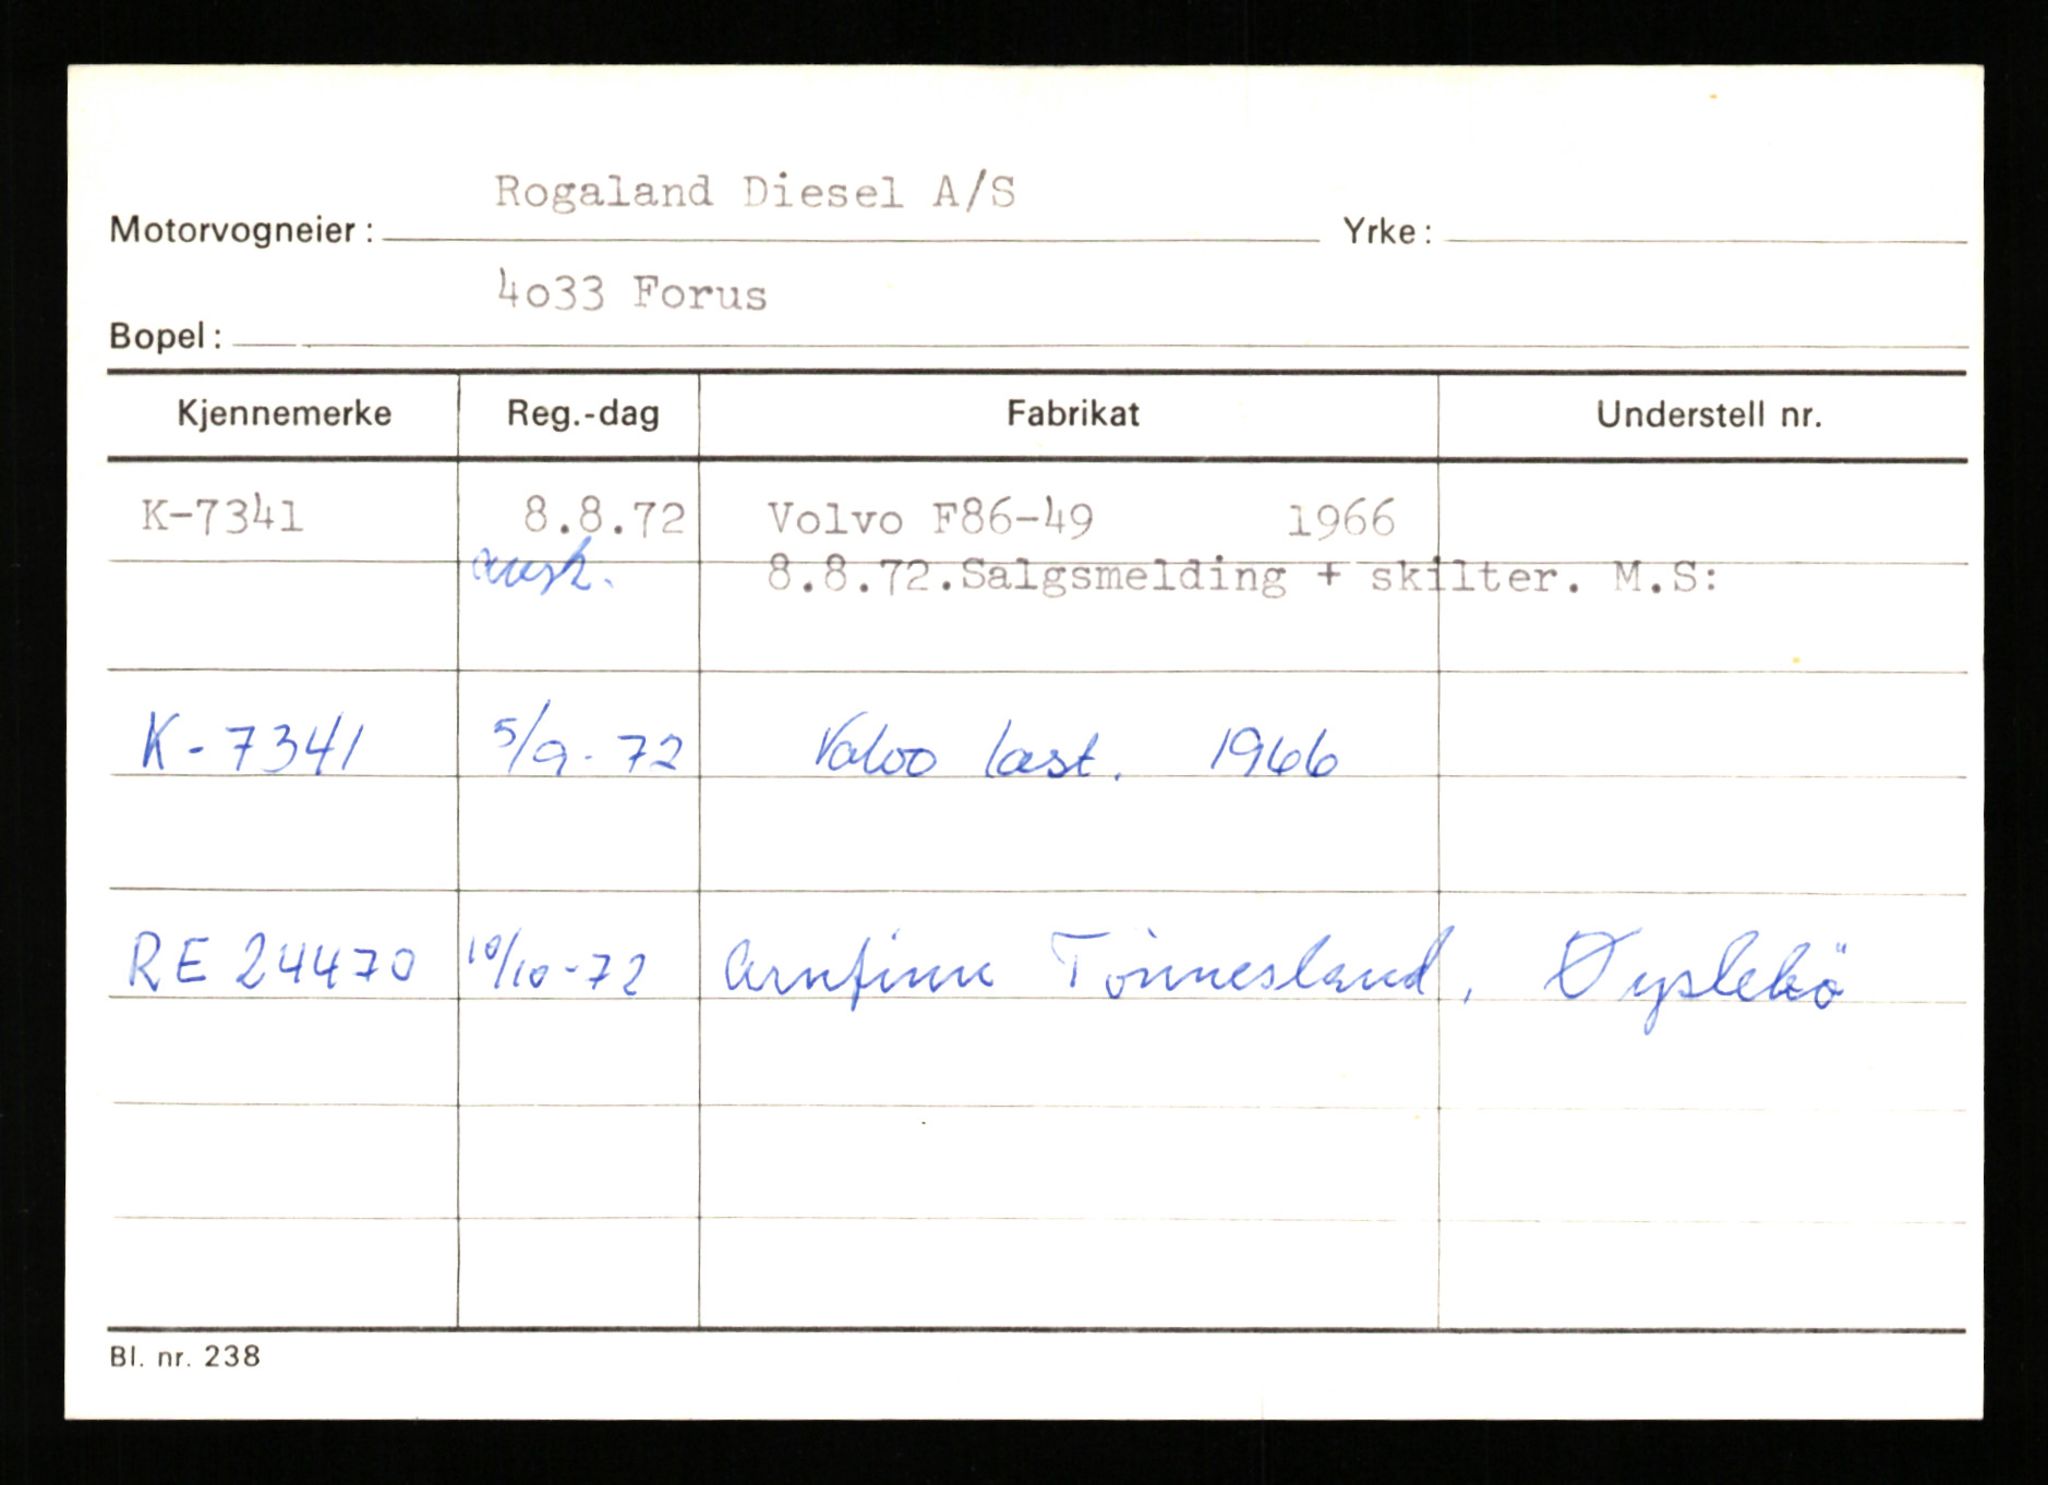 Rogaland Diesel A/S
Motorvogneier: Yrke:
4o33 Forus
Bopel:
Kjennemerke Reg.-dag Fabrikat Understell nr.
K-7341 8.8.72 Volvo F86-49 1966
avsk. 8.8.72.Salgsmelding + skilter. M.S:
K-7341 5/9-72 Volvo last. 1966
RE 24470 10/10-72 Arnfinn Tönnesland, Øyslebö
Bl. nr. 238